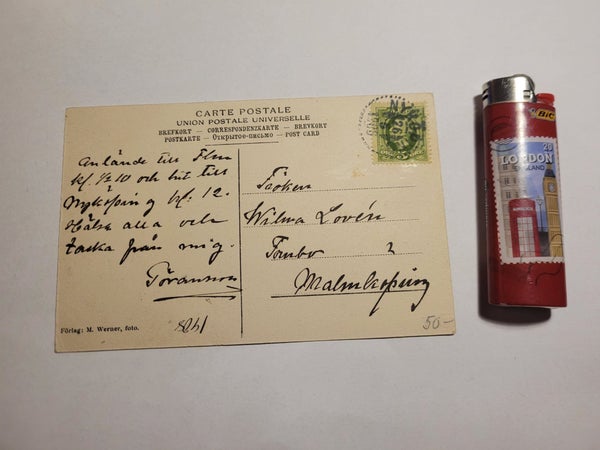 CARTE POSTALE
UNION POSTALE UNIVERSELLE
BREFKORT — CORRESPONDENZKARTE — BREVKORT
POSTKARTE — Открытое письмо — POST CARD
Anlände till Flen
kl. ½ 10 och hit till
Nyköping kl. 12.
Hälsa alla och
tacka från mig.
Göransson
Fröken
Wilma Lovén
Malmköping
50-
Förlag: M. Werner, foto.
BIC
20
LONDON
ENGLAND